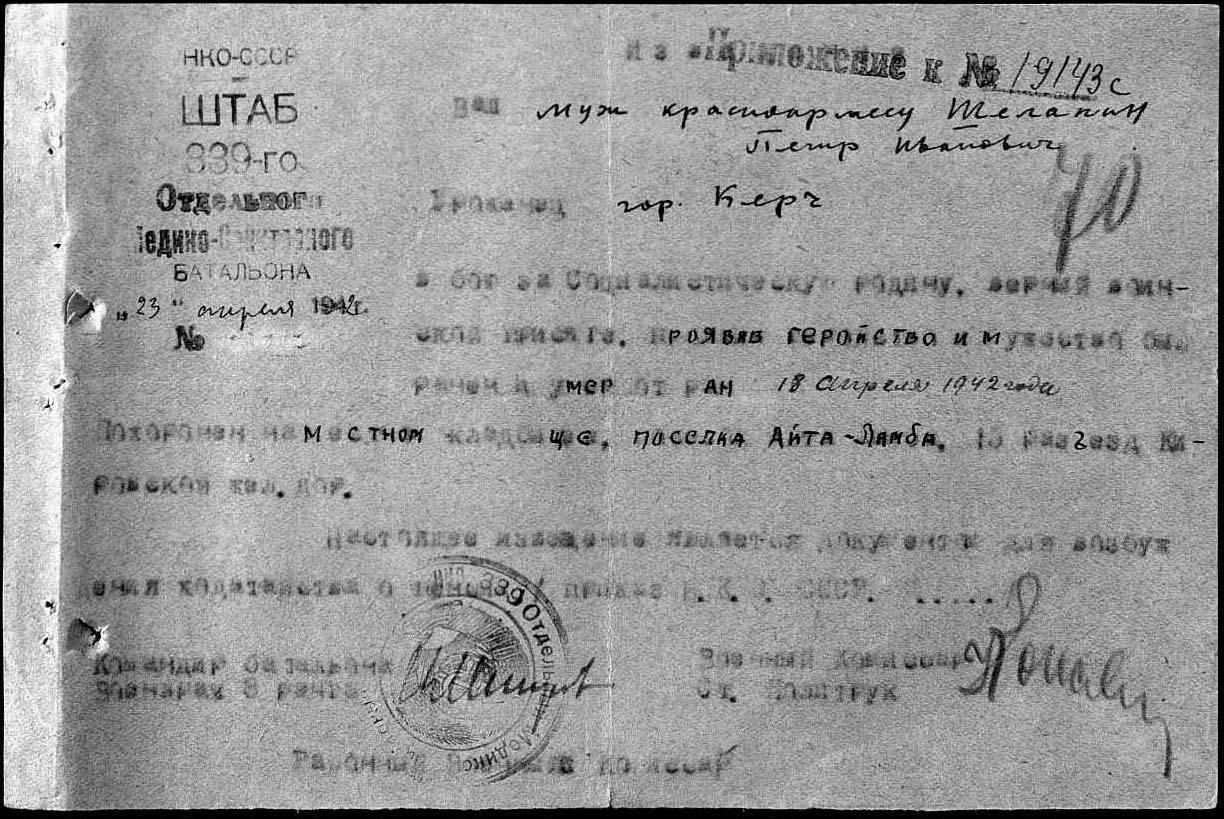 НКО-СССР
ШТАБ
339-го
Отдельного
Медико-Санитарного
БАТАЛЬОНА
"23" апреля 1942г.
№
Из "Приложение к № 19143с
Ваш муж красноармеец Шелапин
Петр Иванович
70
Уроженец гор. Керч
в бою за Социалистическую родину, верный воин-
ской присяге, проявив геройство и мужество был
ранен и умер от ран 18 апреля 1942 года
Похоронен на местном кладбище, поселка Айта-Лямба, 10 разъезд Ки-
ровской жел. дор.
Настоящее извещение является документом для возбуж
дения ходатайства о пенсии / приказ Н.К.О СССР. .....
Командир батальона
Военврач 3 ранга
Военный Комиссар
Ст. Политрук
339 Отдель
Медико
Районный Военный комиссар